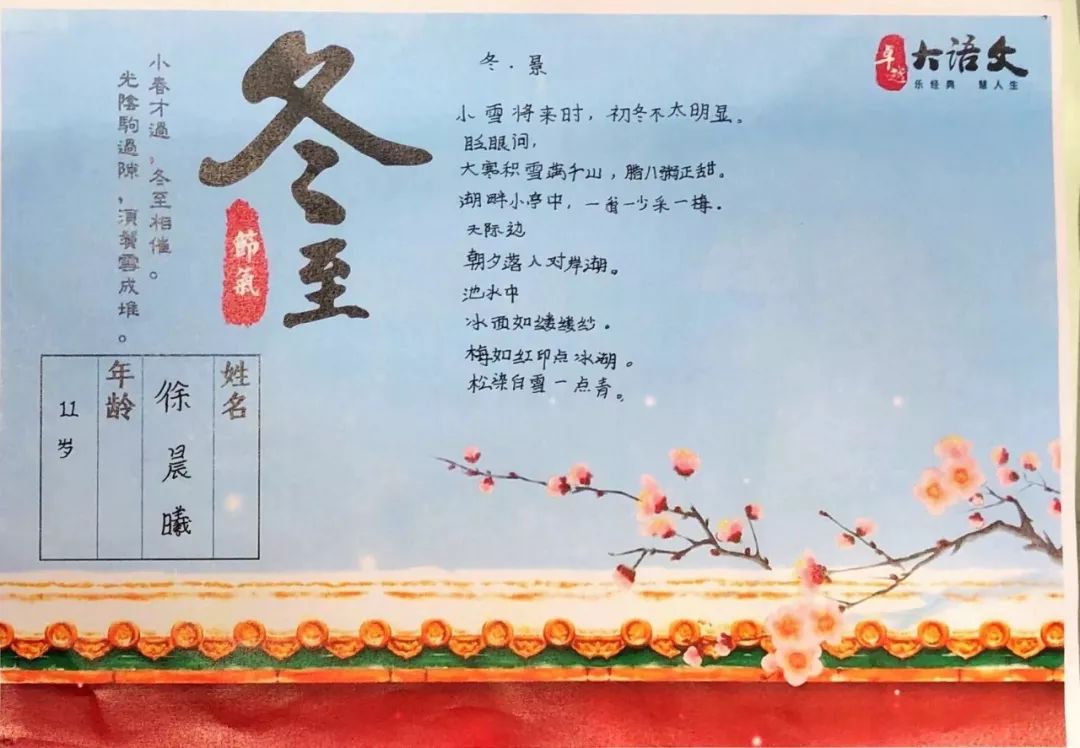 小春才過，冬至相催。
光陰駒過隙，須鬢雪成堆。
冬至
節氣
卓越
大语文
乐经典 慧人生
冬·景
小雪将来时，初冬不太明显。
眨眼间，
大寒积雪满千山，腊八粥正甜。
湖畔小亭中，一翁一少采一梅。
天际边
朝夕落入对岸湖。
池水中
冰面如缕缕纱。
梅如红印点冰湖。
松染白雪一点青。
姓名
徐晨曦
年龄
11岁